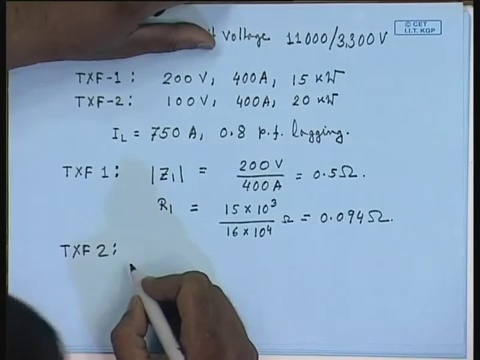 Voltage 11000/3,300V
© CET
I.I.T. KGP
TXF-1: 200 V, 400A, 15 kW
TXF-2: 100V, 400A, 20 kW
I_L = 750 A, 0.8 p.f. lagging.
TXF 1: |Z_1| = 200 V / 400A = 0.5Ω.
R_1 = 15 × 10^3 / 16 × 10^4 Ω = 0.094Ω.
TXF 2: